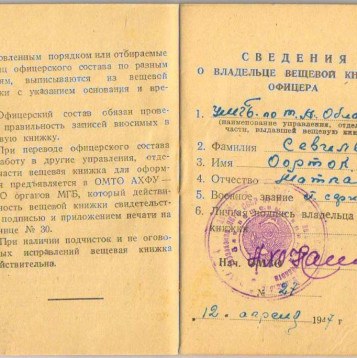 новленным порядком или отбираемые
ищ офицерского состава по разным
ам, выписываются из вещевой
ки с указанием основания и вре-
Офицерский состав обязан прове-
правильность записей вносимых в
ю книжку.
При переводе офицерского состава
аботу в другие управления, отде-
части вещевая книжка для оформ-
я предъявляется в ОМТО АХФУ—
О органов МГБ, который действи-
ность вещевой книжки свидетельст-
подписью и приложением печати на
нице № 30.
При наличии подчисток и не огово-
ых исправлений вещевая книжка
ействительна.
СВЕДЕНИЯ
О ВЛАДЕЛЬЦЕ ВЕЩЕВОЙ КНИ
ОФИЦЕРА
1. УМГБ по Т. А. Обла
(наименование управления, отдел
части, выдавшей вещевую книж
2. Фамилия
3. Имя
4. Отчество
5. Военное звание
6. Личная подпись владельца
книжки
Нач. ОМТО
№ 27
12. апреля 1947